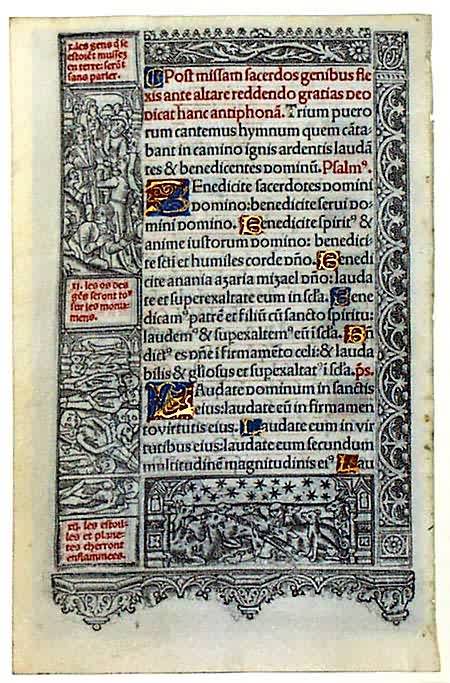 x. les gens q̃ se
estoiẽt mussez
en terre: serõt
sans parler.
xi. les os des
gẽs seront to⁹
sur les monu-
mens.
xii. les estoil-
les et plane-
tes cherront
enflammees.
Post missam sacerdos genibus fle
xis ante altare reddendo gratias deo
dicat hanc antiphonã. Trium puero
rum cantemus hymnum quem cãta-
bant in camino ignis ardentis laudã
tes & benedicentes dominũ. Psalm⁹.
Benedicite sacerdotes domini
domino: benedicite serui do-
mini domino. Benedicite spirit⁹ &
anime iustorum domino: benedici-
te scti et humiles corde dño. Benedi
cite anania azaria mizael dño: lauda
te et superexaltate eum in scła. Bene
dicam⁹ patrẽ et filiũ cũ sancto spiritu:
laudem⁹ & supexaltem⁹ eũ i scła. Bñ
dict⁹ es dñe ĩ firmamẽto celi: & lauda
bilis & gliosus et supexaltat⁹ i scła. ps.
Laudate dominum in sanctis
eius: laudate eũ in firmamen
to virtutis eius. Laudate eum in vir
tutibus eius: laudate eum secundum
multitudinẽ magnitudinis ei⁹ Lau